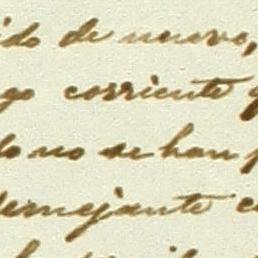 ido de nuevo,
go corriente q
do no se han p
semejante c